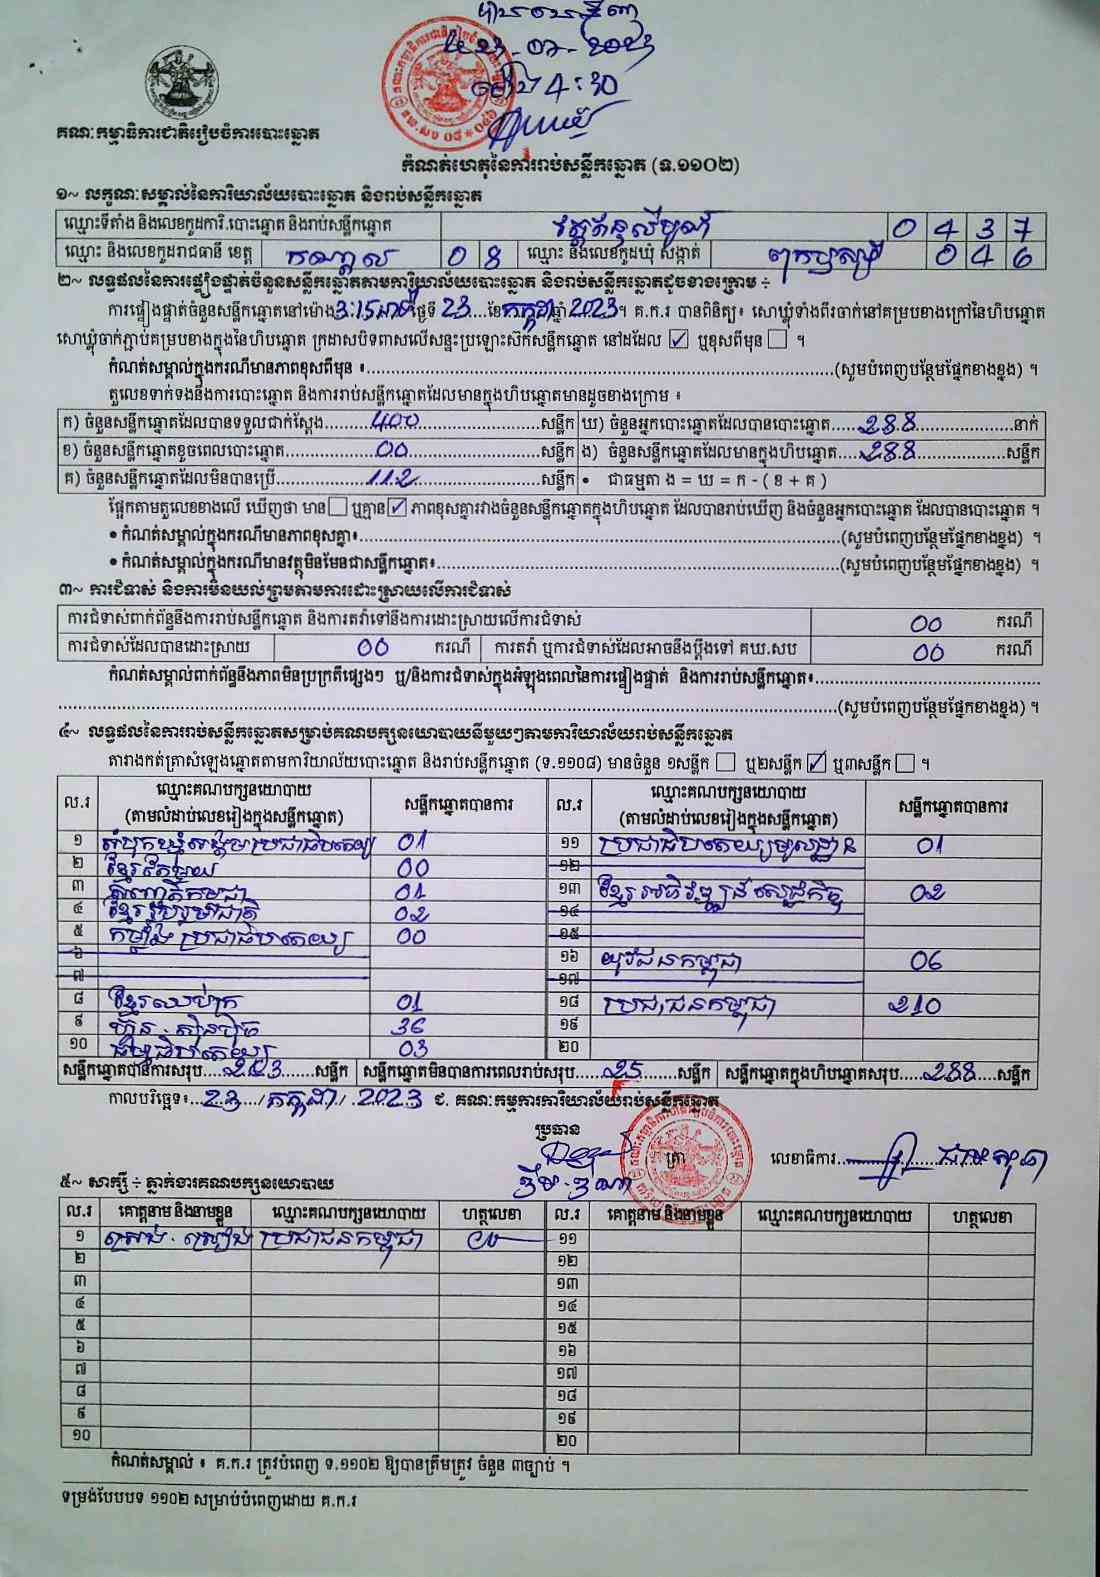 ២៣-០៦-២០២៣
ម៉ោង 4:30
គណៈកម្មាធិការជាតិរៀបចំការបោះឆ្នោត
កំណត់ហេតុនៃការរាប់សន្លឹកឆ្នោត (ទ.១១០២)
១~ លក្ខណៈសម្គាល់នៃការិយាល័យបោះឆ្នោត និងរាប់សន្លឹកឆ្នោត
ឈ្មោះទីតាំង និងលេខកូដការិ.បោះឆ្នោត និងរាប់សន្លឹកឆ្នោត 0 4 3 7
ឈ្មោះ និងលេខកូដរាជធានី ខេត្ត កណ្តាល 0 8 ឈ្មោះ និងលេខកូដឃុំ សង្កាត់ ពុកឫស្សី 0 4 6
២~ លទ្ធផលនៃការផ្ទៀងផ្ទាត់ចំនួនសន្លឹកឆ្នោតតាមការិយាល័យបោះឆ្នោត និងរាប់សន្លឹកឆ្នោតដូចខាងក្រោម ÷
ការផ្ទៀងផ្ទាត់ចំនួនសន្លឹកឆ្នោតនៅម៉ោង 3:15នាទី ថ្ងៃទី 23 ....ខែ កក្កដា ឆ្នាំ 2023។ គ.ក.រ បានពិនិត្យ៖ សោឃ្លុំទាំងពីរចាក់នៅគម្របខាងក្រៅនៃហិបឆ្នោត
សោឃ្លុំចាក់ភ្ជាប់គម្របខាងក្នុងនៃហិបឆ្នោត ក្រដាសបិទពាសលើសន្ទះប្រឡោះស៊កសន្លឹកឆ្នោត នៅដដែល ☑ ឬខុសពីមុន ☐ ។
កំណត់សម្គាល់ក្នុងករណីមានភាពខុសពីមុន ៖..........(សូមបំពេញបន្ថែមផ្នែកខាងខ្នង) ។
តួលេខទាក់ទងនឹងការបោះឆ្នោត និងការរាប់សន្លឹកឆ្នោតដែលមានក្នុងហិបឆ្នោតមានដូចខាងក្រោម ៖
ក) ចំនួនសន្លឹកឆ្នោតដែលបានទទួលជាក់ស្តែង......400......សន្លឹក ឃ) ចំនួនអ្នកបោះឆ្នោតដែលបានបោះឆ្នោត......288......នាក់
ខ) ចំនួនសន្លឹកឆ្នោតខូចពេលបោះឆ្នោត......00......សន្លឹក ង) ចំនួនសន្លឹកឆ្នោតដែលមានក្នុងហិបឆ្នោត......288......សន្លឹក
គ) ចំនួនសន្លឹកឆ្នោតដែលមិនបានប្រើ......112......សន្លឹក • ជាធម្មតា ង = ឃ = ក - ( ខ + គ )
ផ្អែកតាមតួលេខខាងលើ ឃើញថា មាន ☐ ឬគ្មាន ☑ ភាពខុសគ្នារវាងចំនួនសន្លឹកឆ្នោតក្នុងហិបឆ្នោត ដែលបានរាប់ឃើញ និងចំនួនអ្នកបោះឆ្នោត ដែលបានបោះឆ្នោត ។
• កំណត់សម្គាល់ក្នុងករណីមានភាពខុសគ្នា៖..........(សូមបំពេញបន្ថែមផ្នែកខាងខ្នង) ។
• កំណត់សម្គាល់ក្នុងករណីមានវត្ថុមិនមែនជាសន្លឹកឆ្នោត៖..........(សូមបំពេញបន្ថែមផ្នែកខាងខ្នង) ។
៣~ ការជំទាស់ និងការមិនយល់ព្រមតាមការដោះស្រាយលើការជំទាស់
ការជំទាស់ពាក់ព័ន្ធនឹងការរាប់សន្លឹកឆ្នោត និងការតវ៉ាទៅនឹងការដោះស្រាយលើការជំទាស់ 00 ករណី
ការជំទាស់ដែលបានដោះស្រាយ 00 ករណី ការតវ៉ា ឬការជំទាស់ដែលអាចនឹងប្តឹងទៅ គឃ.សប 00 ករណី
កំណត់សម្គាល់ពាក់ព័ន្ធនឹងភាពមិនប្រក្រតីផ្សេងៗ ឬ/និងការជំទាស់ក្នុងអំឡុងពេលនៃការផ្ទៀងផ្ទាត់ និងការរាប់សន្លឹកឆ្នោត៖..........
..........(សូមបំពេញបន្ថែមផ្នែកខាងខ្នង) ។
៤~ លទ្ធផលនៃការរាប់សន្លឹកឆ្នោតសម្រាប់គណបក្សនយោបាយនីមួយៗតាមការិយាល័យរាប់សន្លឹកឆ្នោត
តារាងកត់ត្រាសំឡេងឆ្នោតតាមការិយាល័យបោះឆ្នោត និងរាប់សន្លឹកឆ្នោត (ទ.១១០៨) មានចំនួន ១សន្លឹក ☐ ឬ២សន្លឹក ☑ ឬ៣សន្លឹក ☐ ។
ល.រ ឈ្មោះគណបក្សនយោបាយ (តាមលំដាប់លេខរៀងក្នុងសន្លឹកឆ្នោត) សន្លឹកឆ្នោតបានការ ល.រ ឈ្មោះគណបក្សនយោបាយ (តាមលំដាប់លេខរៀងក្នុងសន្លឹកឆ្នោត) សន្លឹកឆ្នោតបានការ
១ សំបុកឃ្មុំសង្គមប្រជាធិបតេយ្យ 01 ១១ ប្រជាធិបតេយ្យមូលដ្ឋាន 01
២ ខ្មែរតែមួយ 00 ១២
៣ សញ្ជាតិកម្ពុជា 01 ១៣ ខ្មែរអភិវឌ្ឍន៍សេដ្ឋកិច្ច 02
៤ ខ្មែររួបរួមជាតិ 02 ១៤
៥ កម្លាំងប្រជាធិបតេយ្យ 00 ១៥
៦ ១៦ យុវជនកម្ពុជា 06
៧ ១៧
៨ ខ្មែរឈប់ក្រ 01 ១៨ ប្រជាជនកម្ពុជា 210
៩ ហ៊្វុនស៊ិនប៉ិច 36 ១៩
១០ ធម្មាធិបតេយ្យ 03 ២០
សន្លឹកឆ្នោតបានការសរុប.....263.....សន្លឹក សន្លឹកឆ្នោតមិនបានការពេលរាប់សរុប.....25.....សន្លឹក សន្លឹកឆ្នោតក្នុងហិបឆ្នោតសរុប.....288.....សន្លឹក
កាលបរិច្ឆេទ៖..23../កក្កដា/.2023 ជ. គណៈកម្មការការិយាល័យរាប់សន្លឹកឆ្នោត
ប្រធាន
ត្រា លេខាធិការ..........
៥~ សាក្សី ÷ ភ្នាក់ងារគណបក្សនយោបាយ
ល.រ គោត្តនាម និងនាមខ្លួន ឈ្មោះគណបក្សនយោបាយ ហត្ថលេខា ល.រ គោត្តនាម និងនាមខ្លួន ឈ្មោះគណបក្សនយោបាយ ហត្ថលេខា
១ ប្រជាជនកម្ពុជា ១១
២ ១២
៣ ១៣
៤ ១៤
៥ ១៥
៦ ១៦
៧ ១៧
៨ ១៨
៩ ១៩
១០ ២០
កំណត់សម្គាល់ ៖ គ.ក.រ ត្រូវបំពេញ ទ.១១០២ ឱ្យបានត្រឹមត្រូវ ចំនួន ៣ច្បាប់ ។
ទម្រង់បែបបទ ១១០២ សម្រាប់បំពេញដោយ គ.ក.រ